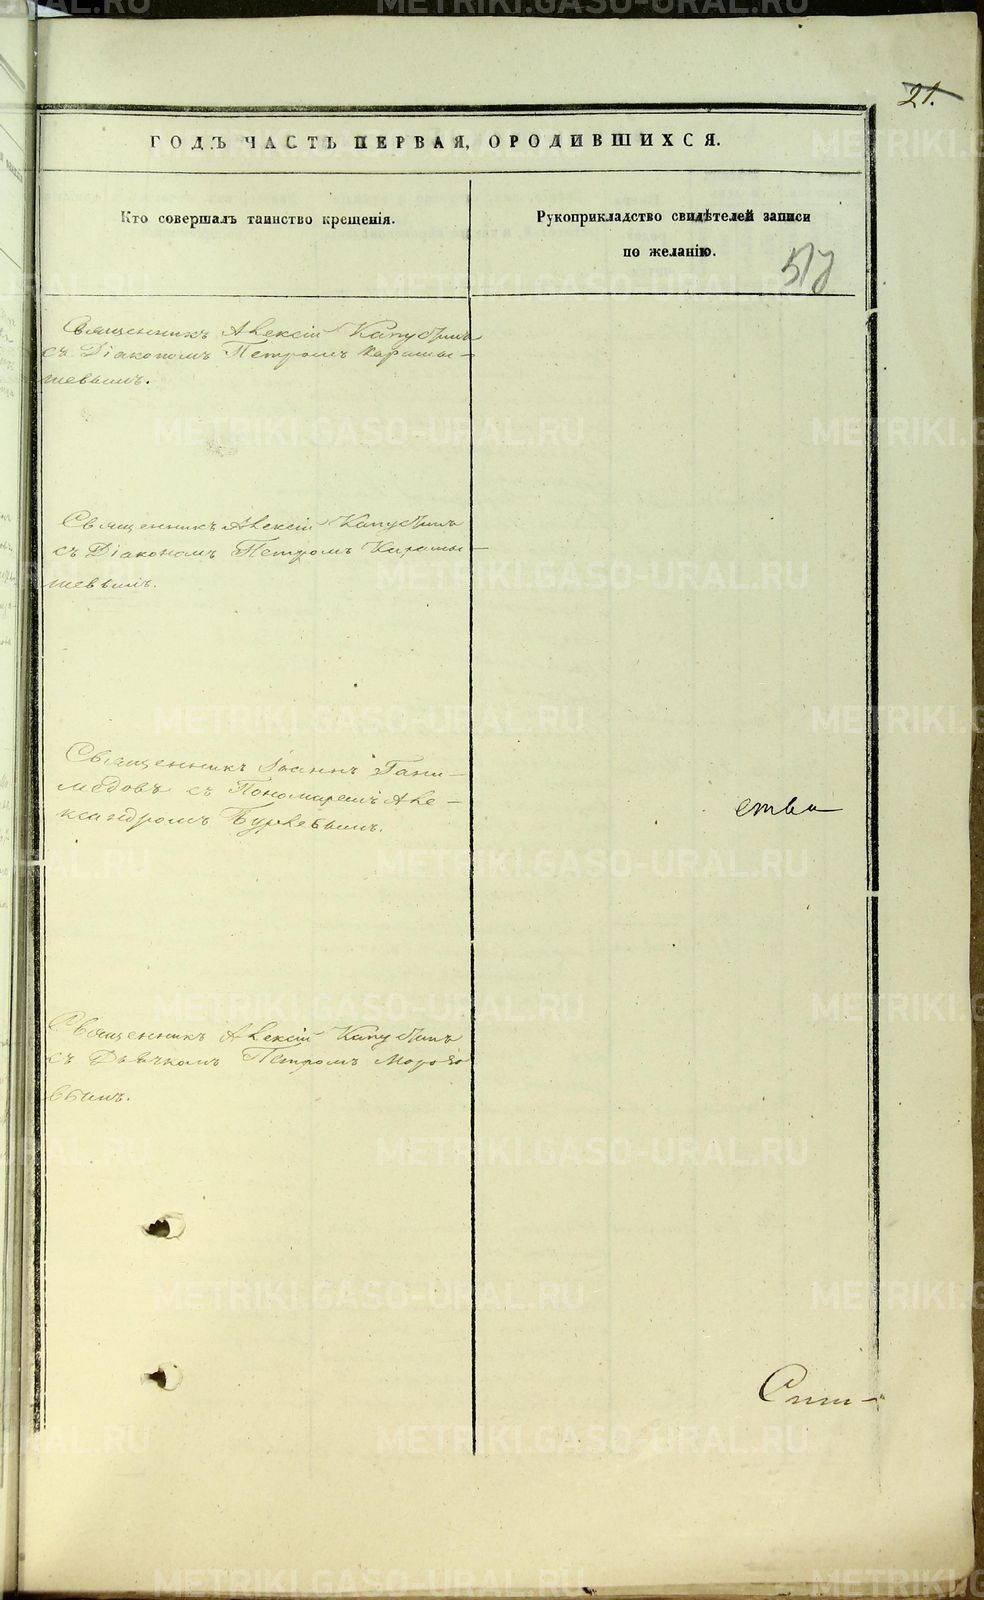 21.
ГОДЪ ЧАСТЬ ПЕРВАЯ, ОРОДИВШИХСЯ.
Кто совершалъ таинство крещенія.
Рукоприкладство свидѣтелей записи
по желанію.
Священникъ Алексій Капустинъ
съ Діакономъ Петромъ Карамы-
шевымъ.
Священникъ Алексій Капустинъ
съ Діакономъ Петромъ Карамы-
шевымъ.
Священникъ Іоаннъ Гани-
медовъ съ Пономаремъ Але-
ксандромъ
ства
Священникъ Алексій Капустинъ
съ Дьячкомъ Петромъ Морозо
вымъ.
METRIKI.GASO-URAL.RU